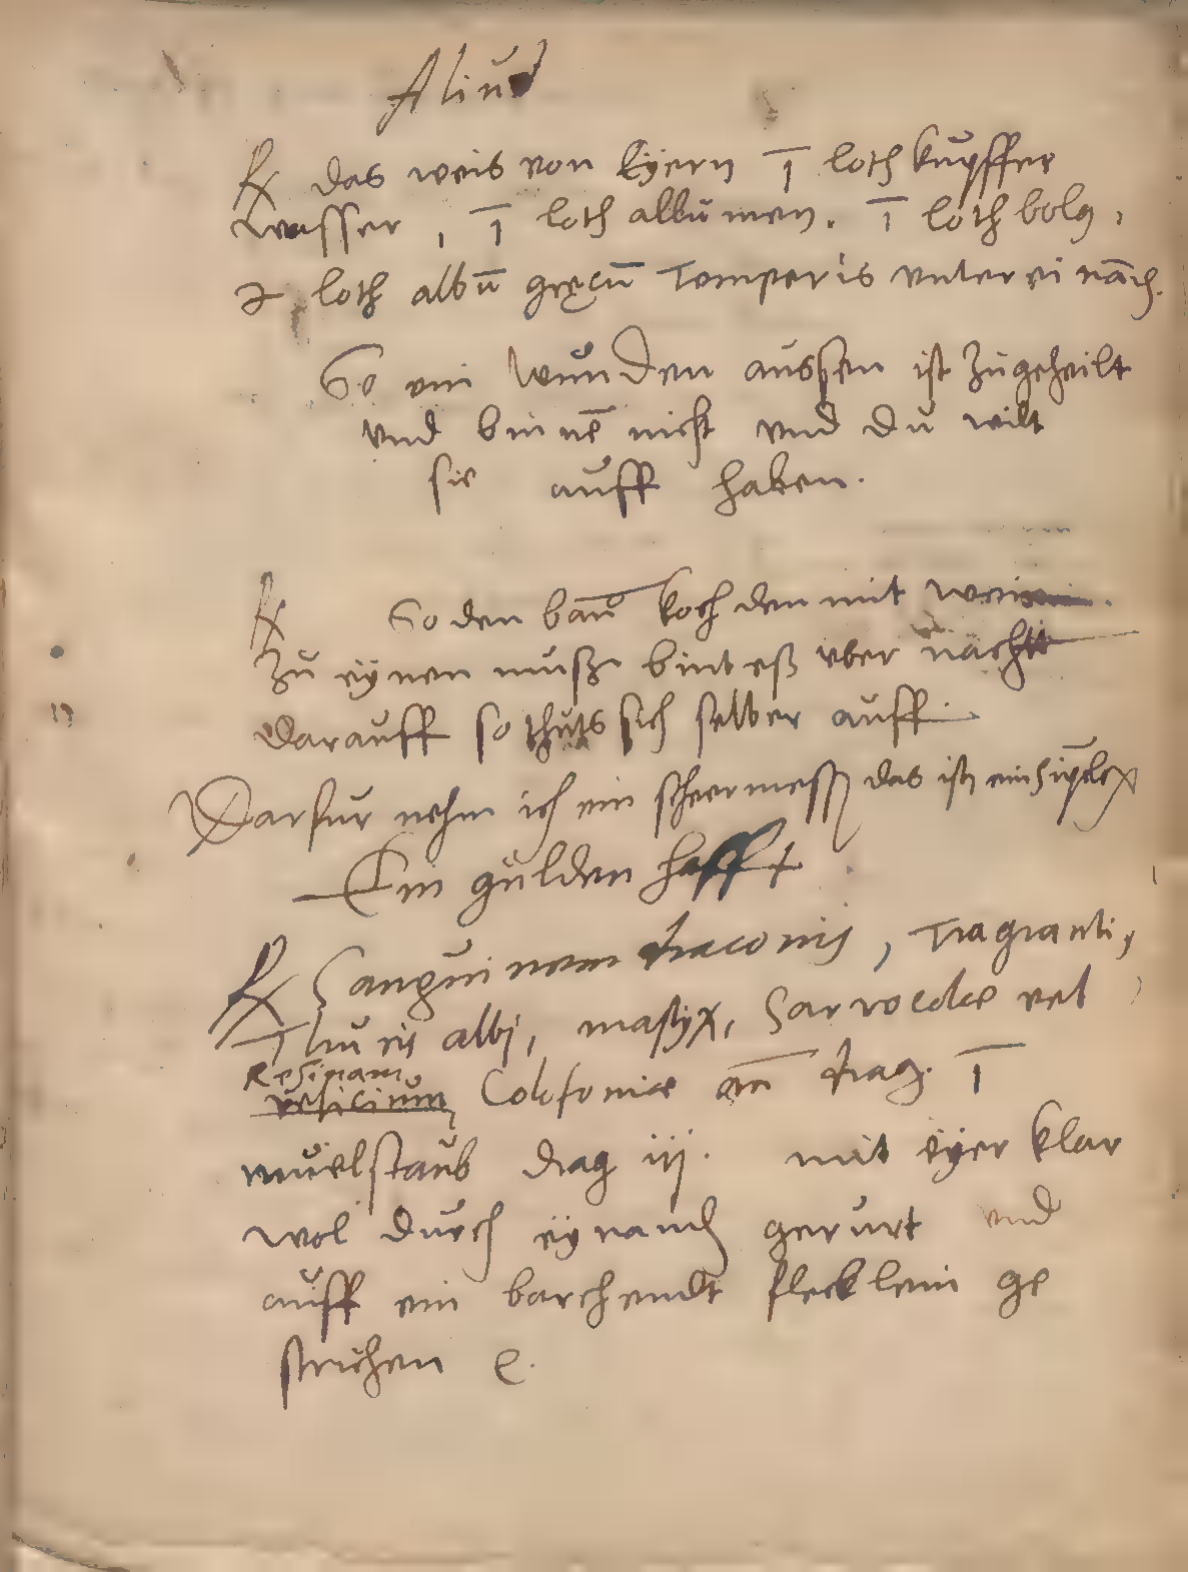 Aliud
℞ das weis von Eÿern ī loth kupffer
wasser, ī loth albumen. ī loth bolꝫ,
2 loth albū grecū Temperis vnter ei nād.
So ein wunden aussen ist zugeheilt
vnd binnē nicht vnd du wilt
sie auff haben.
℞ So den bau koch den mit wein
Zu eÿnen mußz bint eß vber nacht
darauff so thuts sich selber auff.
Darfur nehm ich ein scheermess das ist ein sīplex
Ein gulden hafft
℞ Sanguinem draconis, Tragranti,
Thuris albi, mastyx, Sarrocolle vel
Resinam
Colofonie an̄ drag. ī
muelstaub drag iij. mit eÿer klar
wol durch eÿnand gerurt vnd
auff ein barchendt flecklein ge
strichen